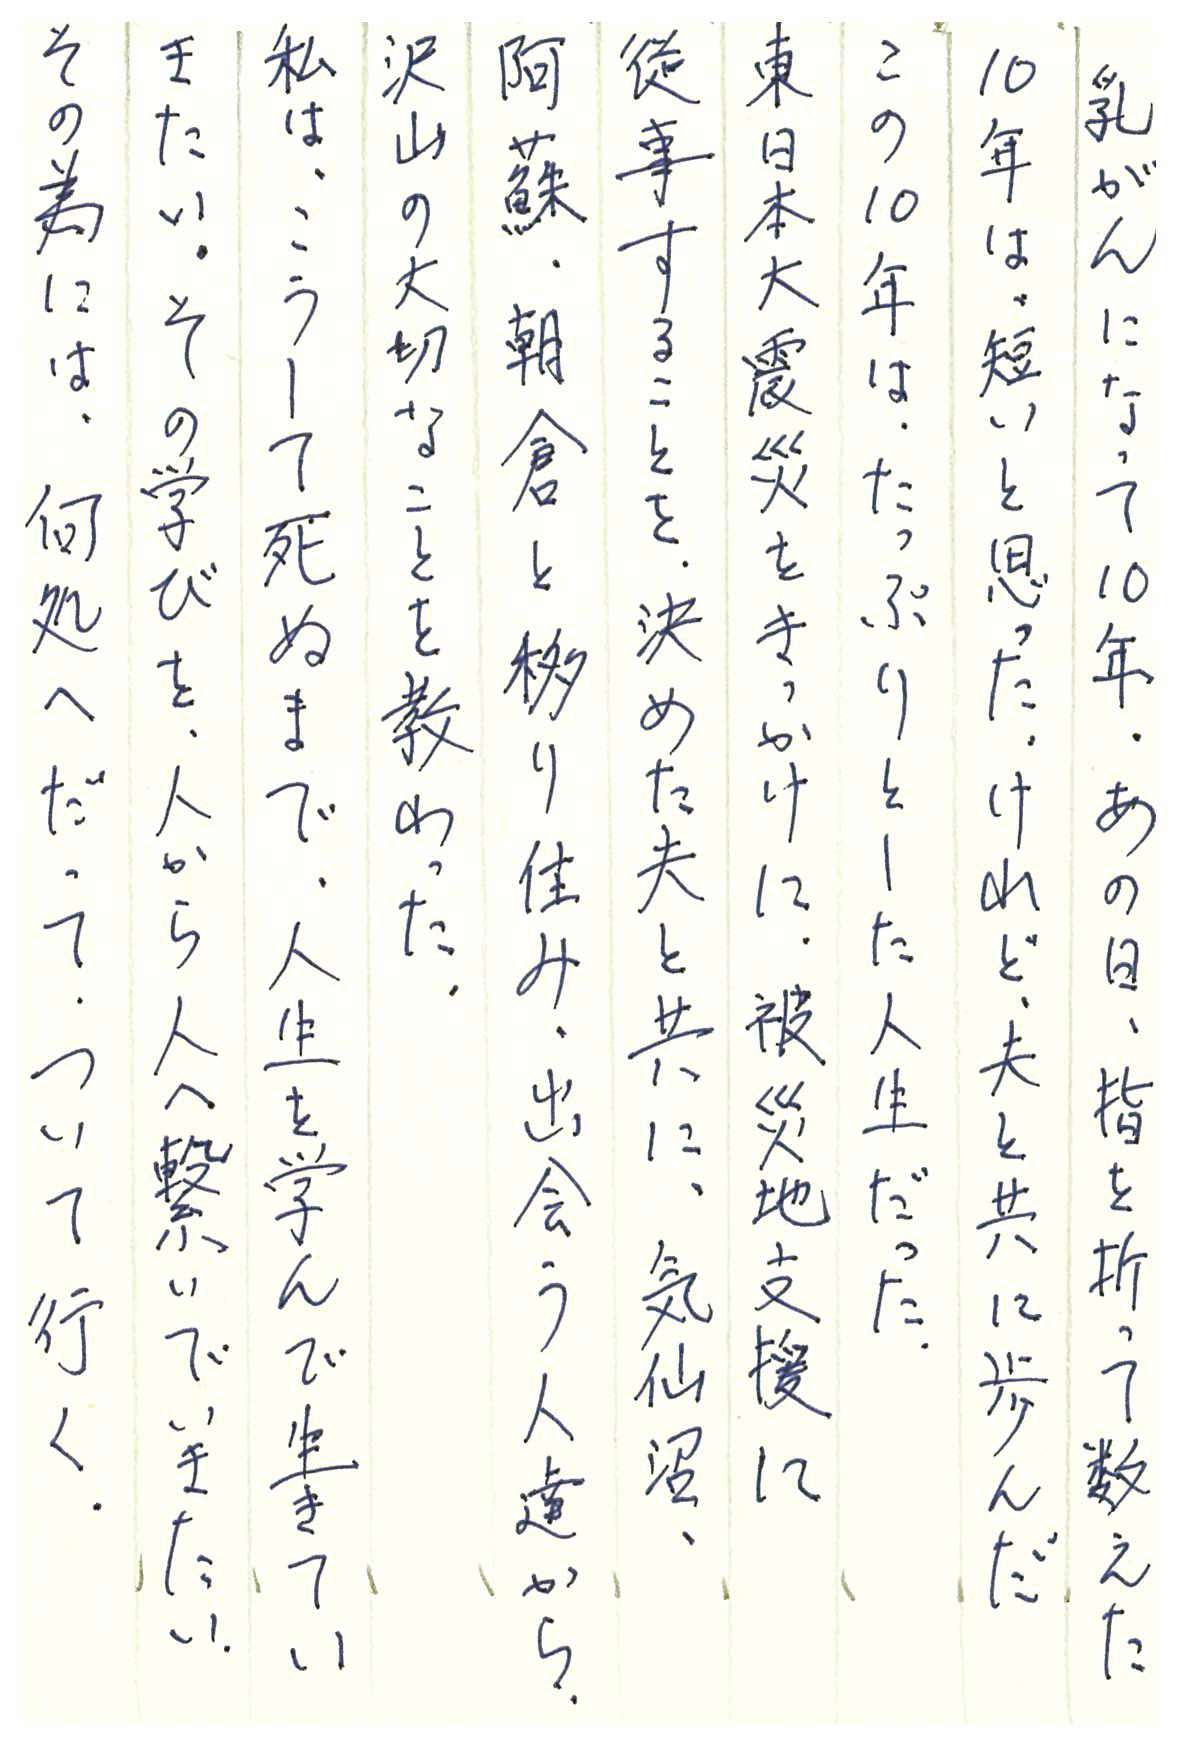 乳がんになって10年。あの日、指を折って数えた
10年は、短いと思った。けれど、夫と共に歩んだ
この10年は、たっぷりとした人生だった。
東日本大震災をきっかけに、被災地支援に
従事することを、決めた夫と共に、気仙沼、
阿蘇、朝倉と移り住み、出会う人達から、
沢山の大切なことを教わった。
私は、こうして死ぬまで、人生を学んで生きてい
きたい。その学びを、人から人へ繋いでいきたい。
その為には、何処へだって、ついて行く。